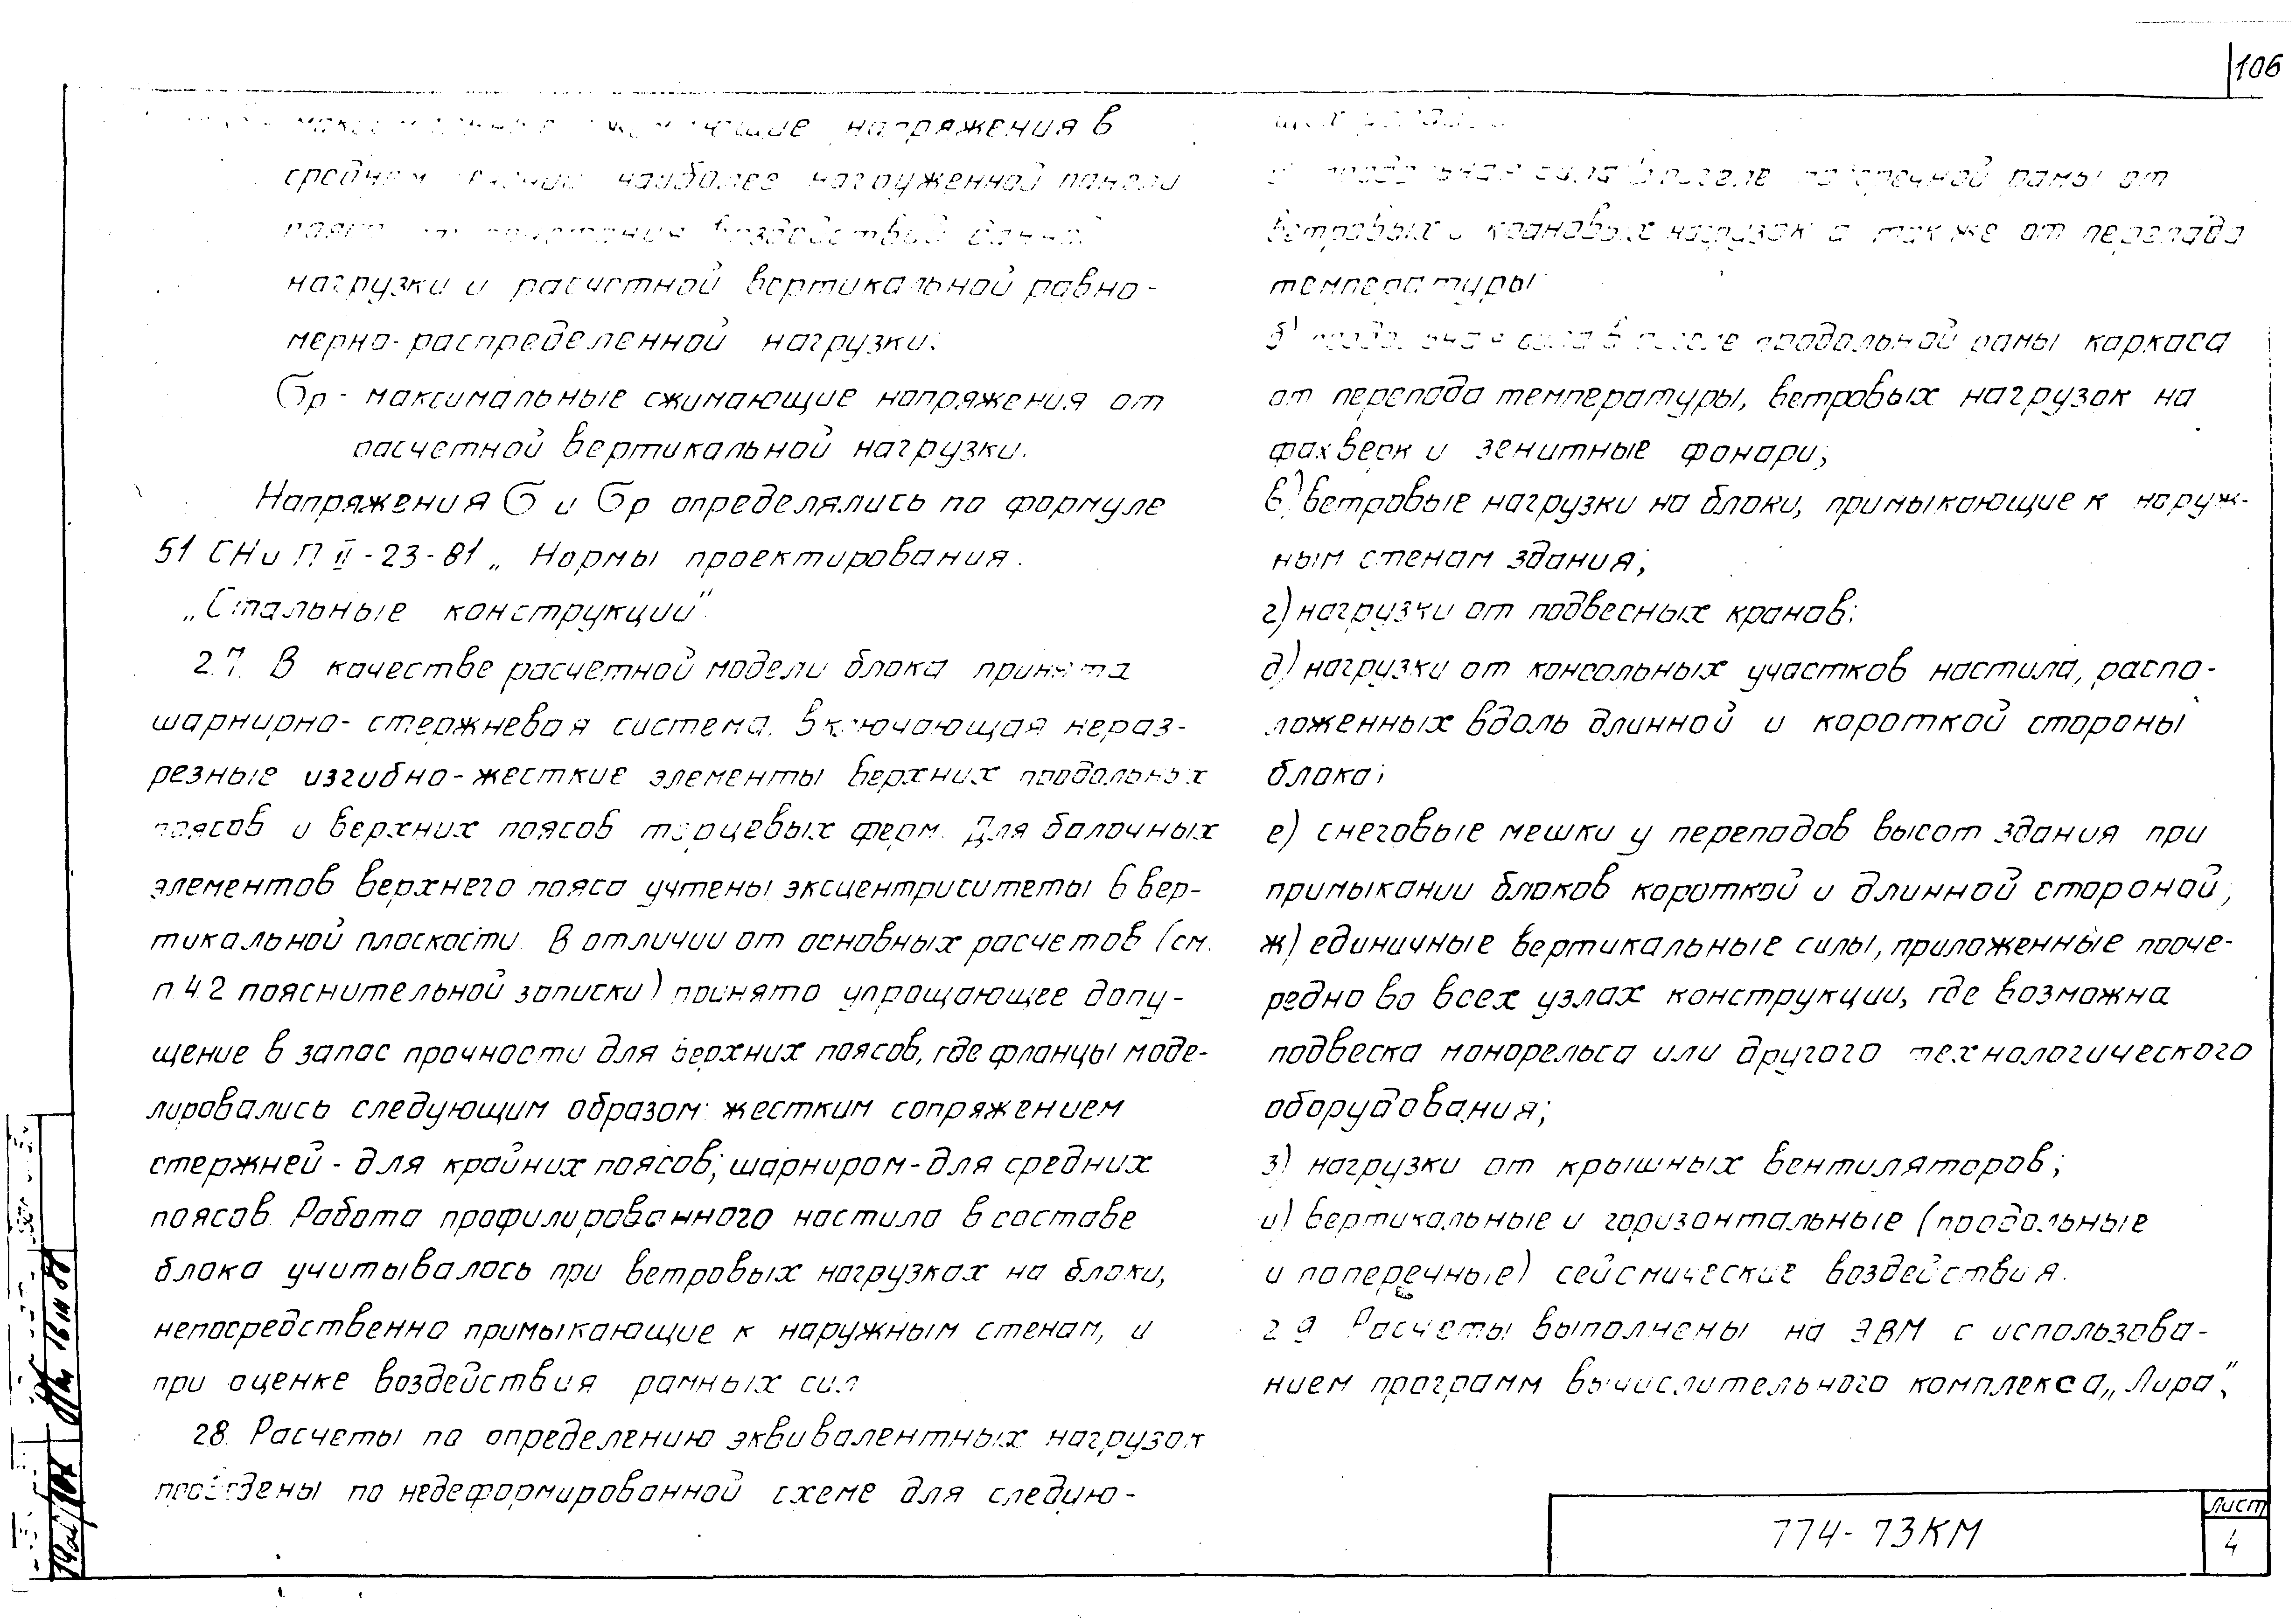 106
напряжения в
среднем наиболее нагруженной панели
воздействий данной
нагрузки и расчетной вертикальной равно-
мерно-распределенной нагрузки;
σр - максимальные сжимающие напряжения от
расчетной вертикальной нагрузки.
Напряжения σ и σр определялись по формуле
51 СНиП II-23-81 „Нормы проектирования.
„Стальные конструкции".
2.7. В качестве расчетной модели блока принята
шарнирно-стержневая система, включающая нераз-
резные изгибно-жесткие элементы верхних продольных
поясов и верхних поясов торцевых ферм. Для балочных
элементов верхнего пояса учтены эксцентриситеты в вер-
тикальной плоскости. В отличии от основных расчетов (см.
п 4.2 пояснительной записки) принято упрощающее допу-
щение в запас прочности для верхних поясов, где фланцы моде-
лировались следующим образом: жестким сопряжением
стержней - для крайних поясов; шарниром - для средних
поясов. Работа профилированного настила в составе
блока учитывалась при ветровых нагрузках на блоки,
непосредственно примыкающие к наружным стенам, и
при оценке воздействия рамных сил
2.8. Расчеты по определению эквивалентных нагрузок
проведены по недеформированной схеме для следую-
продольная сила в ригеле поперечной рамы от
ветровых и крановых нагрузок а также от перепада
температуры
б) продольная сила в ригеле продольной рамы каркаса
от перепада температуры, ветровых нагрузок на
фахверк и зенитные фонари;
в) ветровые нагрузки на блоки, примыкающие к наруж-
ным стенам здания;
г) нагрузки от подвесных кранов;
д) нагрузки от консольных участков настила, распо-
ложенных вдоль длинной и короткой стороны
блока;
е) снеговые мешки у перепадов высот здания при
примыкании блоков короткой и длинной стороной;
ж) единичные вертикальные силы, приложенные пооче-
редно во всех узлах конструкции, где возможна
подвеска монорельса или другого технологического
оборудования;
з) нагрузки от крышных вентиляторов;
и) вертикальные и горизонтальные (продольные
и поперечные) сейсмические воздействия.
2.9 Расчеты выполнены на ЭВМ с использова-
нием программ вычислительного комплекса „Лира",
774-73КМ
Лист
4